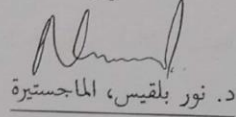 د. نور بلقيس، الماجستيرة